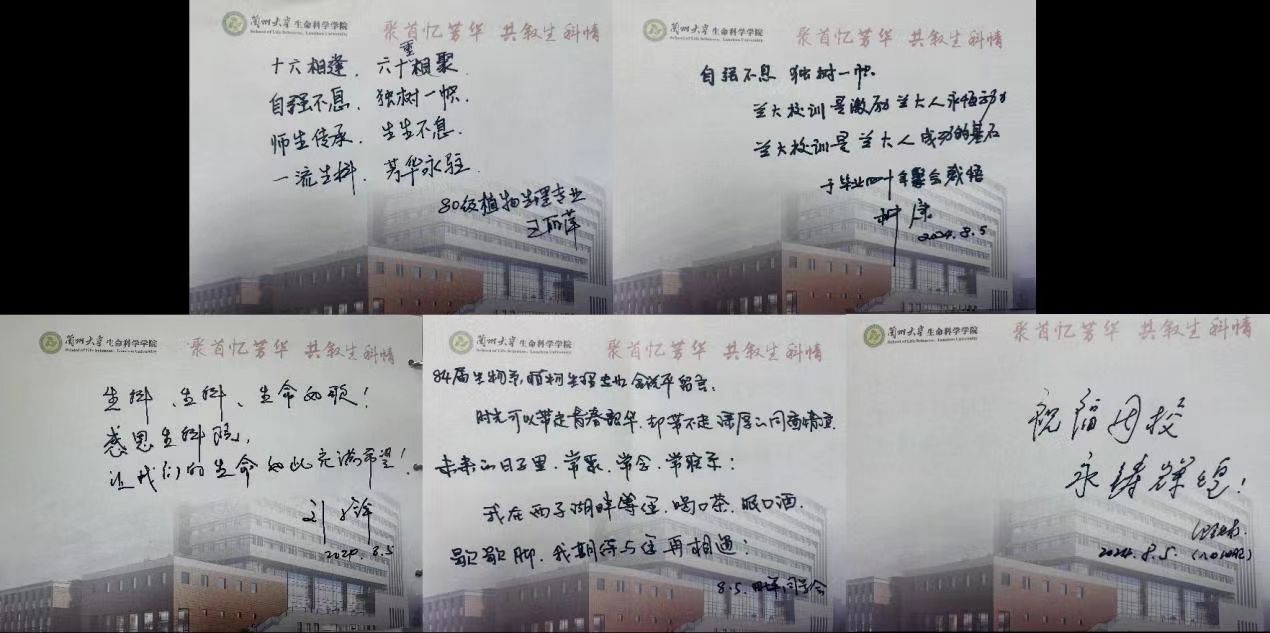 兰州大学 生命科学学院
School of Life Sciences, Lanzhou University
聚首忆芳华 共叙生科情
十六相逢、六十重相聚
自强不息、独树一帜、
师生传承、生生不息、
一流生科、芳华永驻、
80级植物生理专业
王丽萍
兰州大学 生命科学学院
School of Life Sciences, Lanzhou University
聚首忆芳华 共叙生科情
自强不息 独树一帜.
兰大校训是激励兰大人永恒动力
兰大校训是兰大人成功的基石
于毕业四十年聚会感悟
2024.8.5
兰州大学 生命科学学院
School of Life Sciences, Lanzhou University
聚首忆芳华 共叙生科情
生科、生科、生命的歌!
感恩生科院,
让我们的生命如此充满希望!
2024.8.5
兰州大学 生命科学学院
School of Life Sciences, Lanzhou University
聚首忆芳华 共叙生科情
84届生物系,植物生理专业 留言:
时光可以带走青春韶华,却带不走深厚的同窗情谊
未来的日子里,常聚、常念、常联系;
我在西子湖畔等侄,喝口茶、眠口酒.
歇歇脚,我期待与侄再相遇;
8.5.
兰州大学 生命科学学院
School of Life Sciences, Lanzhou University
聚首忆芳华 共叙生科情
祝福母校
永铸辉煌!
2024.8.5.